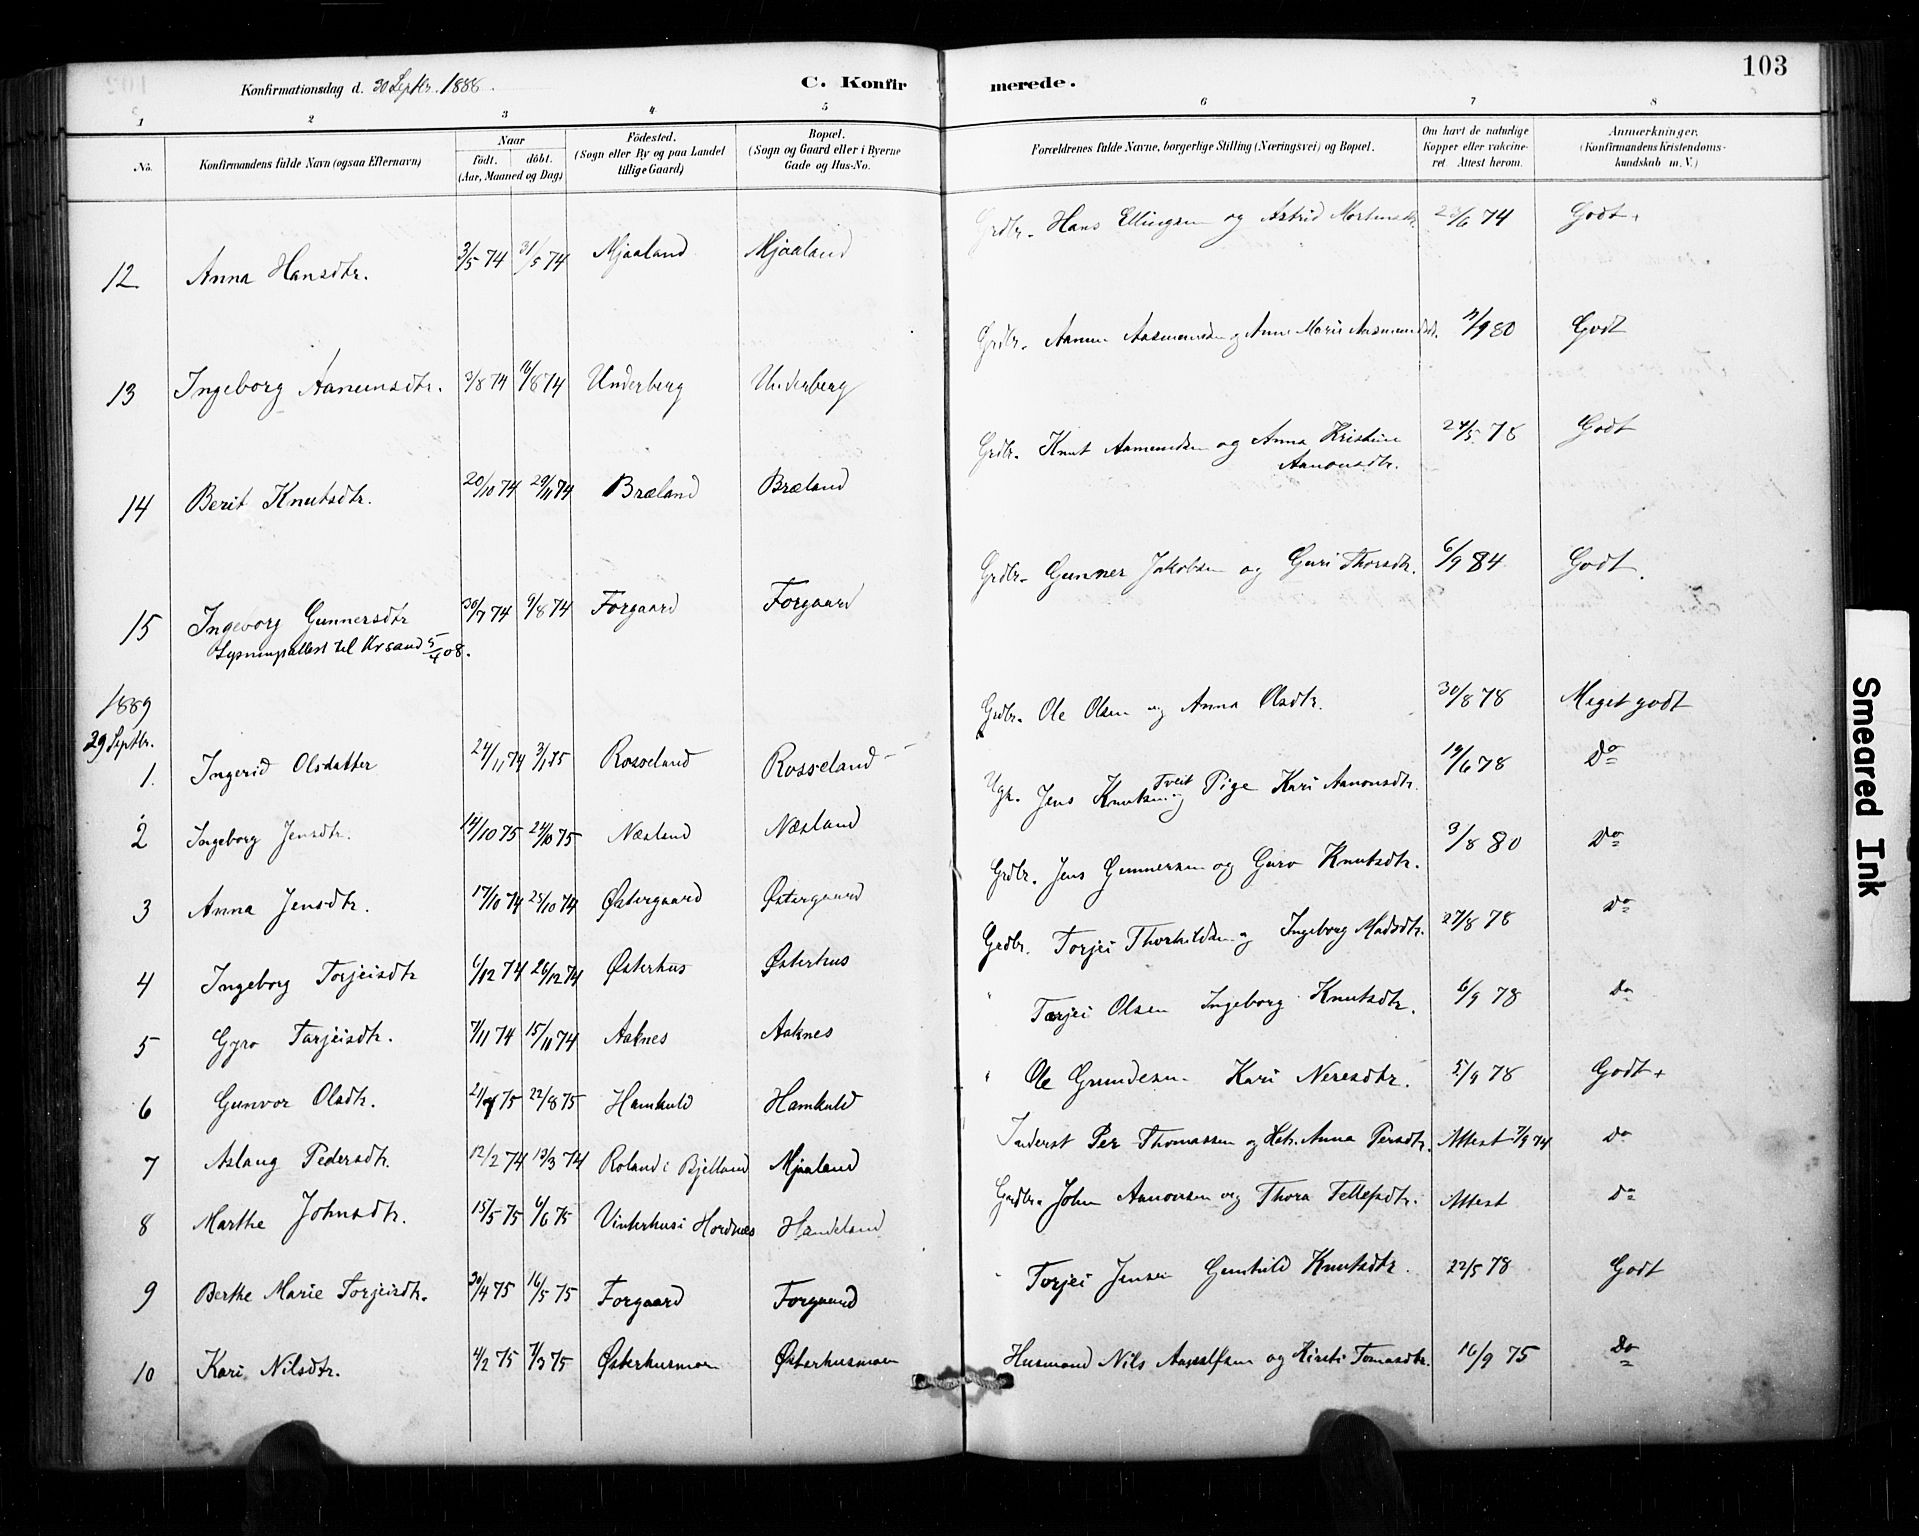 103
Konfirmationsdag d. 30 Septbr. 1888.
C. Konfirmerede.
1 2 3 4 5 6 7 8
No.
Konfirmandens fulde Navn (ogsaa Efternavn)
Naar
födt. döbt.
(Aar, Maaned og Dag)
Födested.
(Sogn eller By og paa Landet
tillige Gaard)
Bopæl.
(Sogn og Gaard eller i Byerne
Gade og Hus-No.
Forældrenes fulde Navne, borgerlige Stilling (Næringsvei) og Bopæl.
Om havt de naturlige
Kopper eller vakcine-
ret Attest herom.
Anmærkninger.
(Konfirmandens Kristendoms-
kundskab m. V.)
12 Anna Hansdtr. 3/5 74 31/5 74 Mjaaland Mjaaland Grdbr. Hans Ellingsen og Astrid Mortensdtr. 23/6 74 Godt+
13 Ingeborg Aanensdtr. 3/8 74 16/8 74 Underberg Underberg Grdbr. Aanen Aasmundsen og Anne Marie Aasmundsdtr. /9 80 Godt
14 Berit Knutsdtr. 20/10 74 29/11 74 Bræland Bræland Grdbr. Knut Aamundsen og Anna Kristine 24/5 78 Godt
Aanonsdtr.
15 Ingeborg Gunnersdtr 30/7 74 9/8 74 Forgaard Forgaard Grdbr. Gunner Jakobsen og Guri Thorsdtr. 6/9 84 Godt.
Lysningsattest til Krsand 5/4 08.
1889
29 Septbr.
1. Ingerid Olsdatter 24/11 74 3/1 75 Rosseland Rosseland Grdbr. Ole Olsen og Anna Olsdtr. 30/8 78 Meget godt
2 Ingeborg Jensdtr. 14/10 75 24/10 75 Næsland Næsland Ugk. Jens Knutsen Tveit og Pige Kari Aanonsdtr. 19/6 78 Do
3 Anna Jensdtr. 17/10 74 25/10 74 Østergaard Østergaard Grdbr. Jens Gunnersen og Guro Knutsdtr. 3/8 80 Do
4 Ingeborg Torjeisdtr 6/12 74 26/12 74 Østerhus Østerhus Grdbr. Torjei Thorkildsen og Ingeborg Madsdtr. 27/8 78 Do
5 Gyro Tarjeisdtr. 7/11 74 15/11 74 Aaknes Aaknes " Tarjei Olsen Ingeborg Knutsdtr. 6/9 78 Do
6 Gunvor Olsdtr. 75 22/8 75 Hamkuld Hamkuld " Ole Grundesn. Kari Neresdtr. 5/9 78 Godt+
7 Aslaug Pedersdtr. 12/2 74 13/3 74 Roland i Bjelland Mjaaland Inderst Per Thomassen og Hstr. Anna Persdtr. Attest 7/9 74 Do
8 Marthe Johnsdtr. 15/5 75 6/6 75 Vinterhus i Hordnes Handeland Grdbr. John Aanonsen og Thora Tellefsdtr. Attest Do
9 Berthe Marie Torjeisdtr. 20/4 75 16/5 75 Forgaard Forgaard " Torjei Jensen Gunhild Knutsdtr. 22/5 78 Godt
10 Kari Nilsdtr. 4/2 75 7/3 75 Østerhusmoen Østerhusmoen Husmand Nils Aanulfsen og Kirsti Tomasdtr. 16/9 75 Do
Smeared Ink